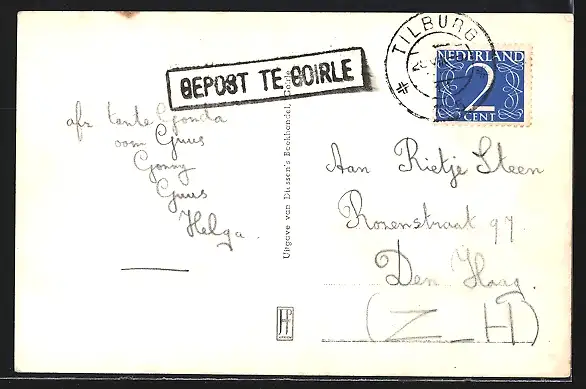 GEPOST TE GOIRLE
TILBURG
NEDERLAND
2
CENT
afz tante Gonda
oom Guus
Gonny
Guus
Helga.
Uitgave van Diessen's Boekhandel, Goirle
Aan Rietje Steen
Rozenstraat 97
Den Haag.
(Z-H)